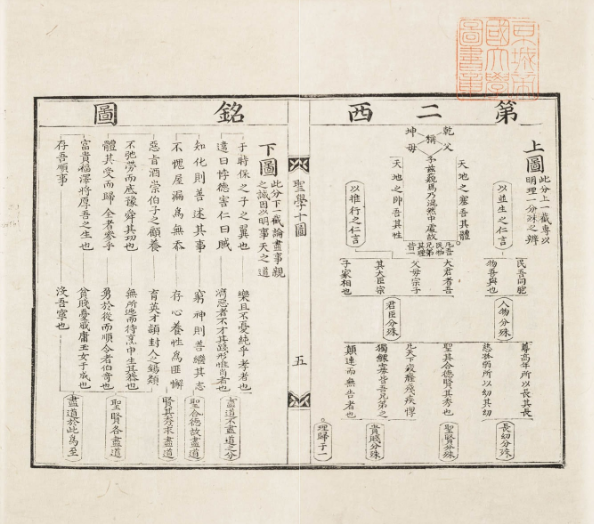 京城帝
國大學
圖書章
第二西
上圖
此分上一截專以
明理一分殊之辨
乾父
坤母
稱
予茲藐焉乃混然中處故
天地之塞吾其體
天地之帥吾其性
以並生之仁言
以推行之仁言
民吾同胞
物吾與也
大君者吾
父母宗子
其大臣宗
子家相也
人物分殊
君臣分殊
尊高年所以長其長
慈孤弱所以幼其幼
聖其合德賢其秀也
凡天下疲癃殘疾惸
獨鰥寡皆吾兄弟之
顛連而無告者也
長幼分殊
聖賢分殊
貴賤分殊
理歸于一
聖學十圖
五
銘圖
下圖
此分下截論盡事親
之誠因以明事天之道
于時保之子之翼也
樂且不憂純乎孝者也
違曰悖德害仁曰賊
濟惡者不才其踐形惟肖者也
知化則善述其事
窮神則善繼其志
不愧屋漏為無忝
存心養性為匪懈
惡旨酒崇伯子之顧養
育英才潁封人之錫類
不弛勞而底豫舜其功也
無所逃而待烹申生其恭也
體其受而歸全者參乎
勇於從而順令者伯奇也
富貴福澤將厚吾之生也
貧賤憂戚庸玉女于成也
存吾順事
沒吾寧也
盡道不盡道之分
聖合德故盡道
賢其秀求盡道
聖賢各盡道
盡道於此為至